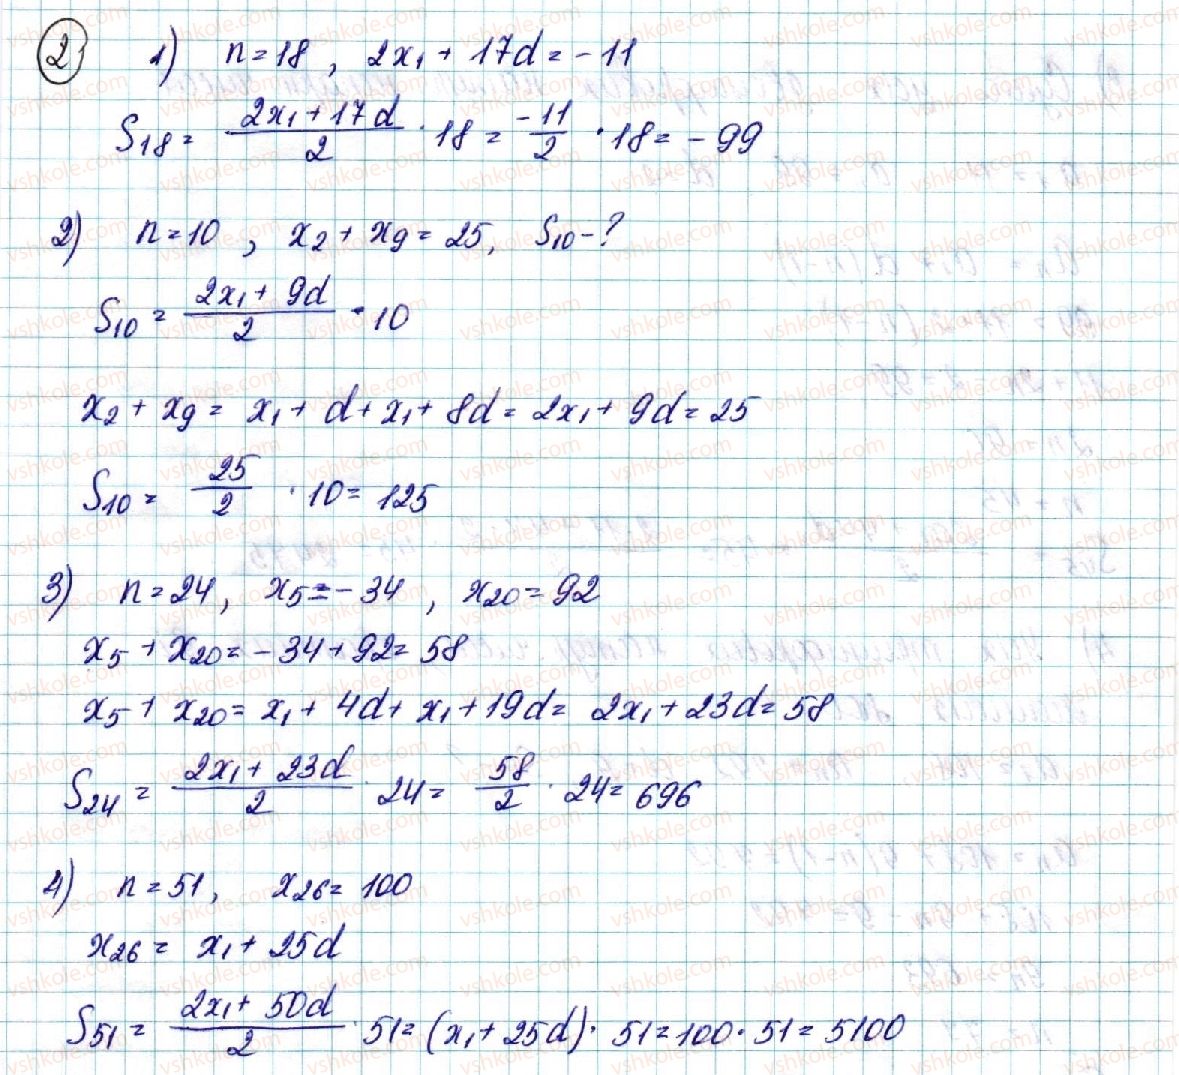 2) 1) n = 18, 2x₁ + 17d = -11
S₁₈ = (2x₁ + 17d)/2 · 18 = -11/2 · 18 = -99
2) n = 10, x₂ + x₉ = 25, S₁₀ - ?
S₁₀ = (2x₁ + 9d)/2 · 10
x₂ + x₉ = x₁ + d + x₁ + 8d = 2x₁ + 9d = 25
S₁₀ = 25/2 · 10 = 125
3) n = 24, x₅ = -34, x₂₀ = 92
x₅ + x₂₀ = -34 + 92 = 58
x₅ + x₂₀ = x₁ + 4d + x₁ + 19d = 2x₁ + 23d = 58
S₂₄ = (2x₁ + 23d)/2 · 24 = 58/2 · 24 = 696
4) n = 51, x₂₆ = 100
x₂₆ = x₁ + 25d
S₅₁ = (2x₁ + 50d)/2 · 51 = (x₁ + 25d) · 51 = 100 · 51 = 5100
vshkole.com